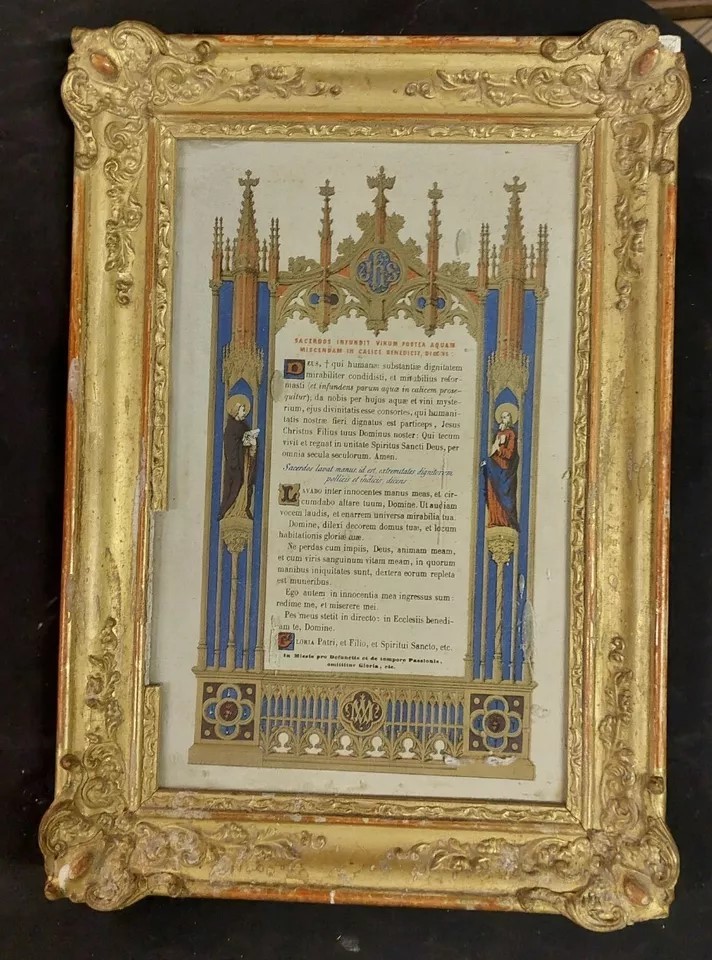 IHS
SACERDOS INFUNDIT VINUM POSTEA AQUAM
MISCENDAM IN CALICE BENEDICIT, DICENS :
DEUS, † qui humanæ substantiæ dignitatem
mirabiliter condidisti, et mirabilius refor-
masti (et infundens parum aquæ in calicem prose-
quitur); da nobis per hujus aquæ et vini myste-
rium, ejus divinitatis esse consortes, qui humani-
tatis nostræ fieri dignatus est particeps, Jesus
Christus Filius tuus Dominus noster: Qui tecum
vivit et regnat in unitate Spiritus Sancti Deus, per
omnia secula seculorum. Amen.
Sacerdos lavat manus, id est, extremitates digitorum
pollicis et indicis, dicens
LAVABO inter innocentes manus meas, et cir-
cumdabo altare tuum, Domine. Ut audiam
vocem laudis, et enarrem universa mirabilia tua.
Domine, dilexi decorem domus tuæ, et locum
habitationis gloriæ tuæ.
Ne perdas cum impiis, Deus, animam meam,
et cum viris sanguinum vitam meam, in quorum
manibus iniquitates sunt, dextera eorum repleta
est muneribus.
Ego autem in innocentia mea ingressus sum:
redime me, et miserere mei.
Pes meus stetit in directo: in Ecclesiis benedi-
am te, Domine.
GLORIA Patri, et Filio, et Spiritui Sancto, etc.
In Missis pro Defunctis et de tempore Passionis,
omittitur Gloria, etc.